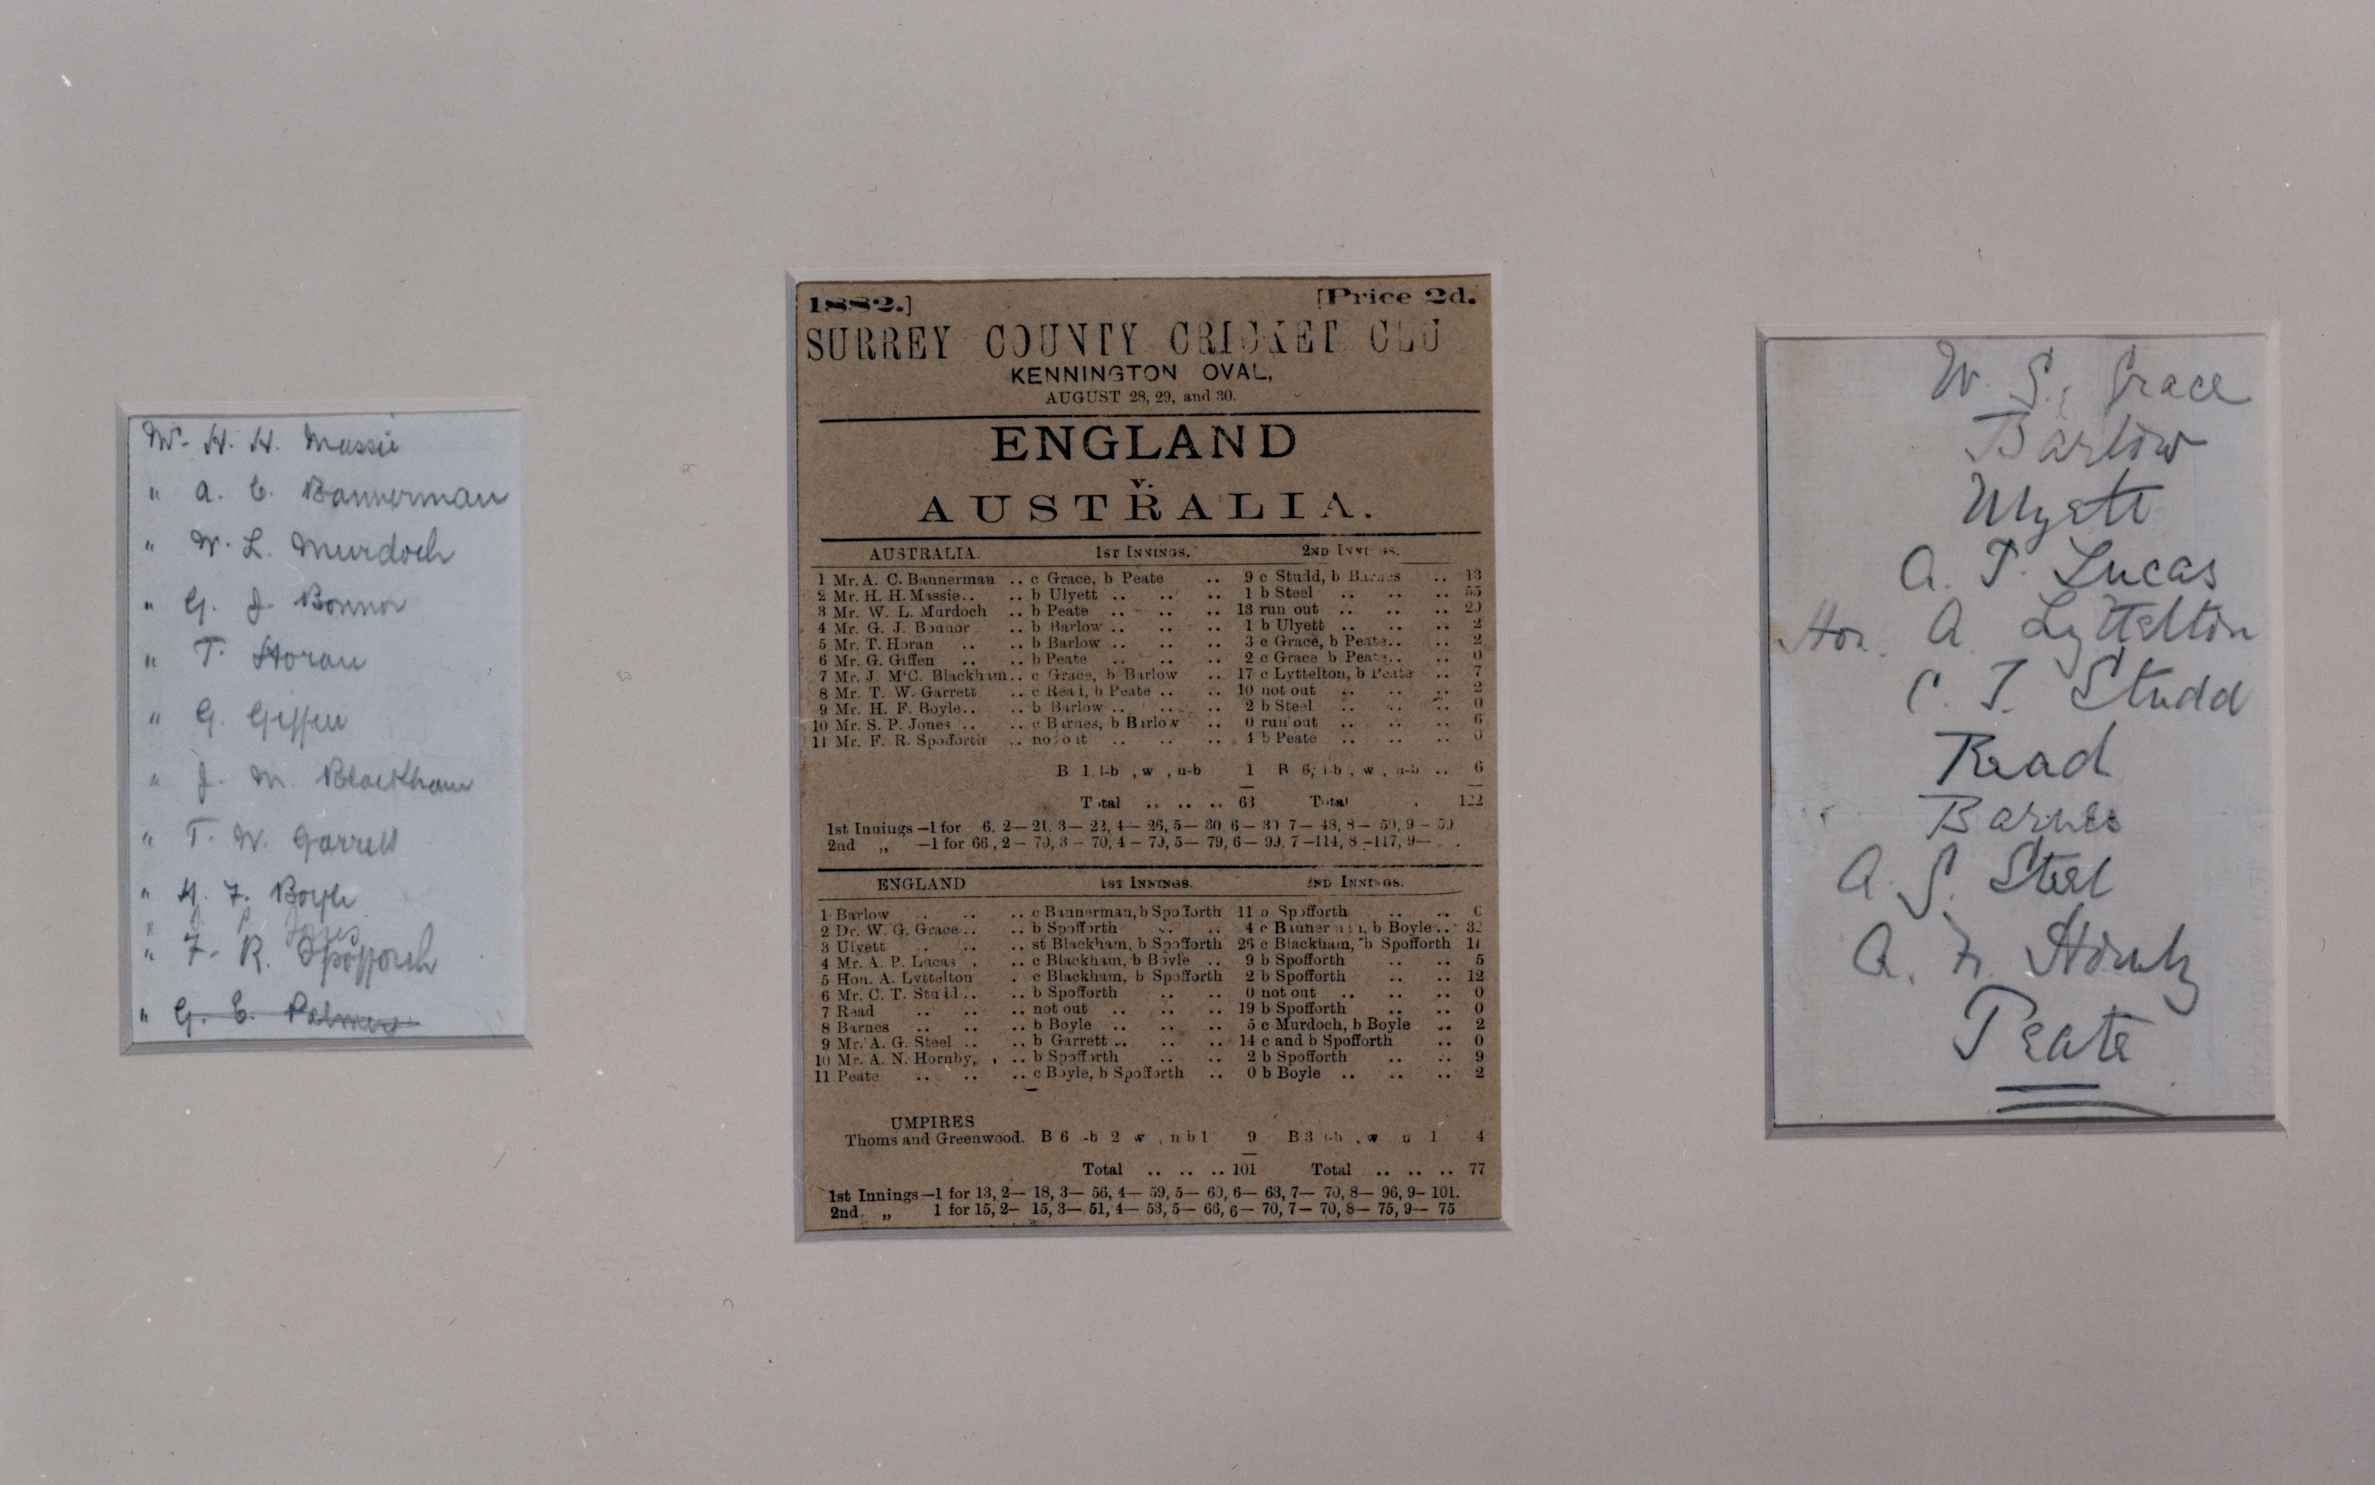 Mr. H. H. Massie
" A. C. Bannerman
" W. L. Murdoch
" G. J. Bonnor
" T. Horan
" G. Giffen
" J. M. Blackham
" T. W. Garrett
" H. F. Boyle
" S. P. Jones
" F. R. Spofforth
" G. E. Palmer
1882.] [Price 2d.
SURREY COUNTY CRICKET CLU
KENNINGTON OVAL,
AUGUST 28, 29, and 30.
ENGLAND
v.
AUSTRALIA.
AUSTRALIA. 1ST INNINGS. 2ND INNINGS.
1 Mr. A. C. Bannerman .. c Grace, b Peate .. 9 c Studd, b Barnes .. 13
2 Mr. H. H. Massie.. .. b Ulyett .. .. .. 1 b Steel .. .. .. 55
3 Mr. W. L. Murdoch .. b Peate .. .. .. 13 run out .. .. .. 29
4 Mr. G. J. Bonnor .. b Barlow .. .. .. 1 b Ulyett .. .. .. 2
5 Mr. T. Horan .. .. b Barlow .. .. .. 3 c Grace, b Peate.. .. 2
6 Mr. G. Giffen .. .. b Peate .. .. .. 2 c Grace b Peate.. .. 0
7 Mr. J. McC. Blackham.. c Grace, b Barlow .. 17 c Lyttelton, b Peate .. 7
8 Mr. T. W. Garrett .. c Read, b Peate .. .. 10 not out .. .. .. 2
9 Mr. H. F. Boyle.. .. b Barlow .. .. .. 2 b Steel .. .. .. 0
10 Mr. S. P. Jones .. .. c Barnes, b Barlow .. 0 run out .. .. .. 6
11 Mr. F. R. Spofforth .. not out .. .. .. 4 b Peate .. .. .. 0
B 1, l-b , w , n-b 1 B 6, l-b , w , n-b .. 6
Total .. .. .. 63 Total . 122
1st Innings—1 for 6, 2— 21, 3— 22, 4— 26, 5— 30, 6— 30, 7— 48, 8— 50, 9— 59
2nd „ —1 for 66, 2— 70, 3— 70, 4— 79, 5— 79, 6— 99, 7—114, 8—117, 9—
ENGLAND 1ST INNINGS. 2ND INNINGS.
1 Barlow . .. .. c Bannerman, b Spofforth 11 b Spofforth .. .. 0
2 Dr. W. G. Grace .. .. b Spofforth .. .. 4 c Bannerman, b Boyle .. 32
3 Ulyett . .. .. st Blackham, b Spofforth 26 c Blackham, b Spofforth 11
4 Mr. A. P. Lucas . .. c Blackham, b Boyle .. 9 b Spofforth .. .. 5
5 Hon. A. Lyttelton . c Blackham, b Spofforth 2 b Spofforth .. .. 12
6 Mr. C. T. Studd .. .. b Spofforth .. .. 0 not out .. .. .. 0
7 Read .. .. .. not out .. .. .. 19 b Spofforth .. .. 0
8 Barnes .. .. .. b Boyle .. .. .. 5 c Murdoch, b Boyle .. 2
9 Mr. A. G. Steel .. .. b Garrett .. .. .. 14 c and b Spofforth .. 0
10 Mr. A. N. Hornby, . .. b Spofforth .. .. 2 b Spofforth .. .. 9
11 Peate .. .. .. c Boyle, b Spofforth .. 0 b Boyle .. .. .. 2
UMPIRES
Thoms and Greenwood. B 6 -b 2 w , n b 1 9 B 3 l-b , w n 1 4
Total .. .. .. 101 Total .. .. .. 77
1st Innings—1 for 13, 2— 18, 3— 56, 4— 59, 5— 60, 6— 63, 7— 70, 8— 96, 9— 101.
2nd. „ 1 for 15, 2— 15, 3— 51, 4— 53, 5— 66, 6— 70, 7— 70, 8— 75, 9— 75
W. G. Grace
Barlow
Ulyett
A. P. Lucas
Hon. A. Lyttelton
C. T. Studd
Read
Barnes
A. G. Steel
A. N. Hornby
Peate